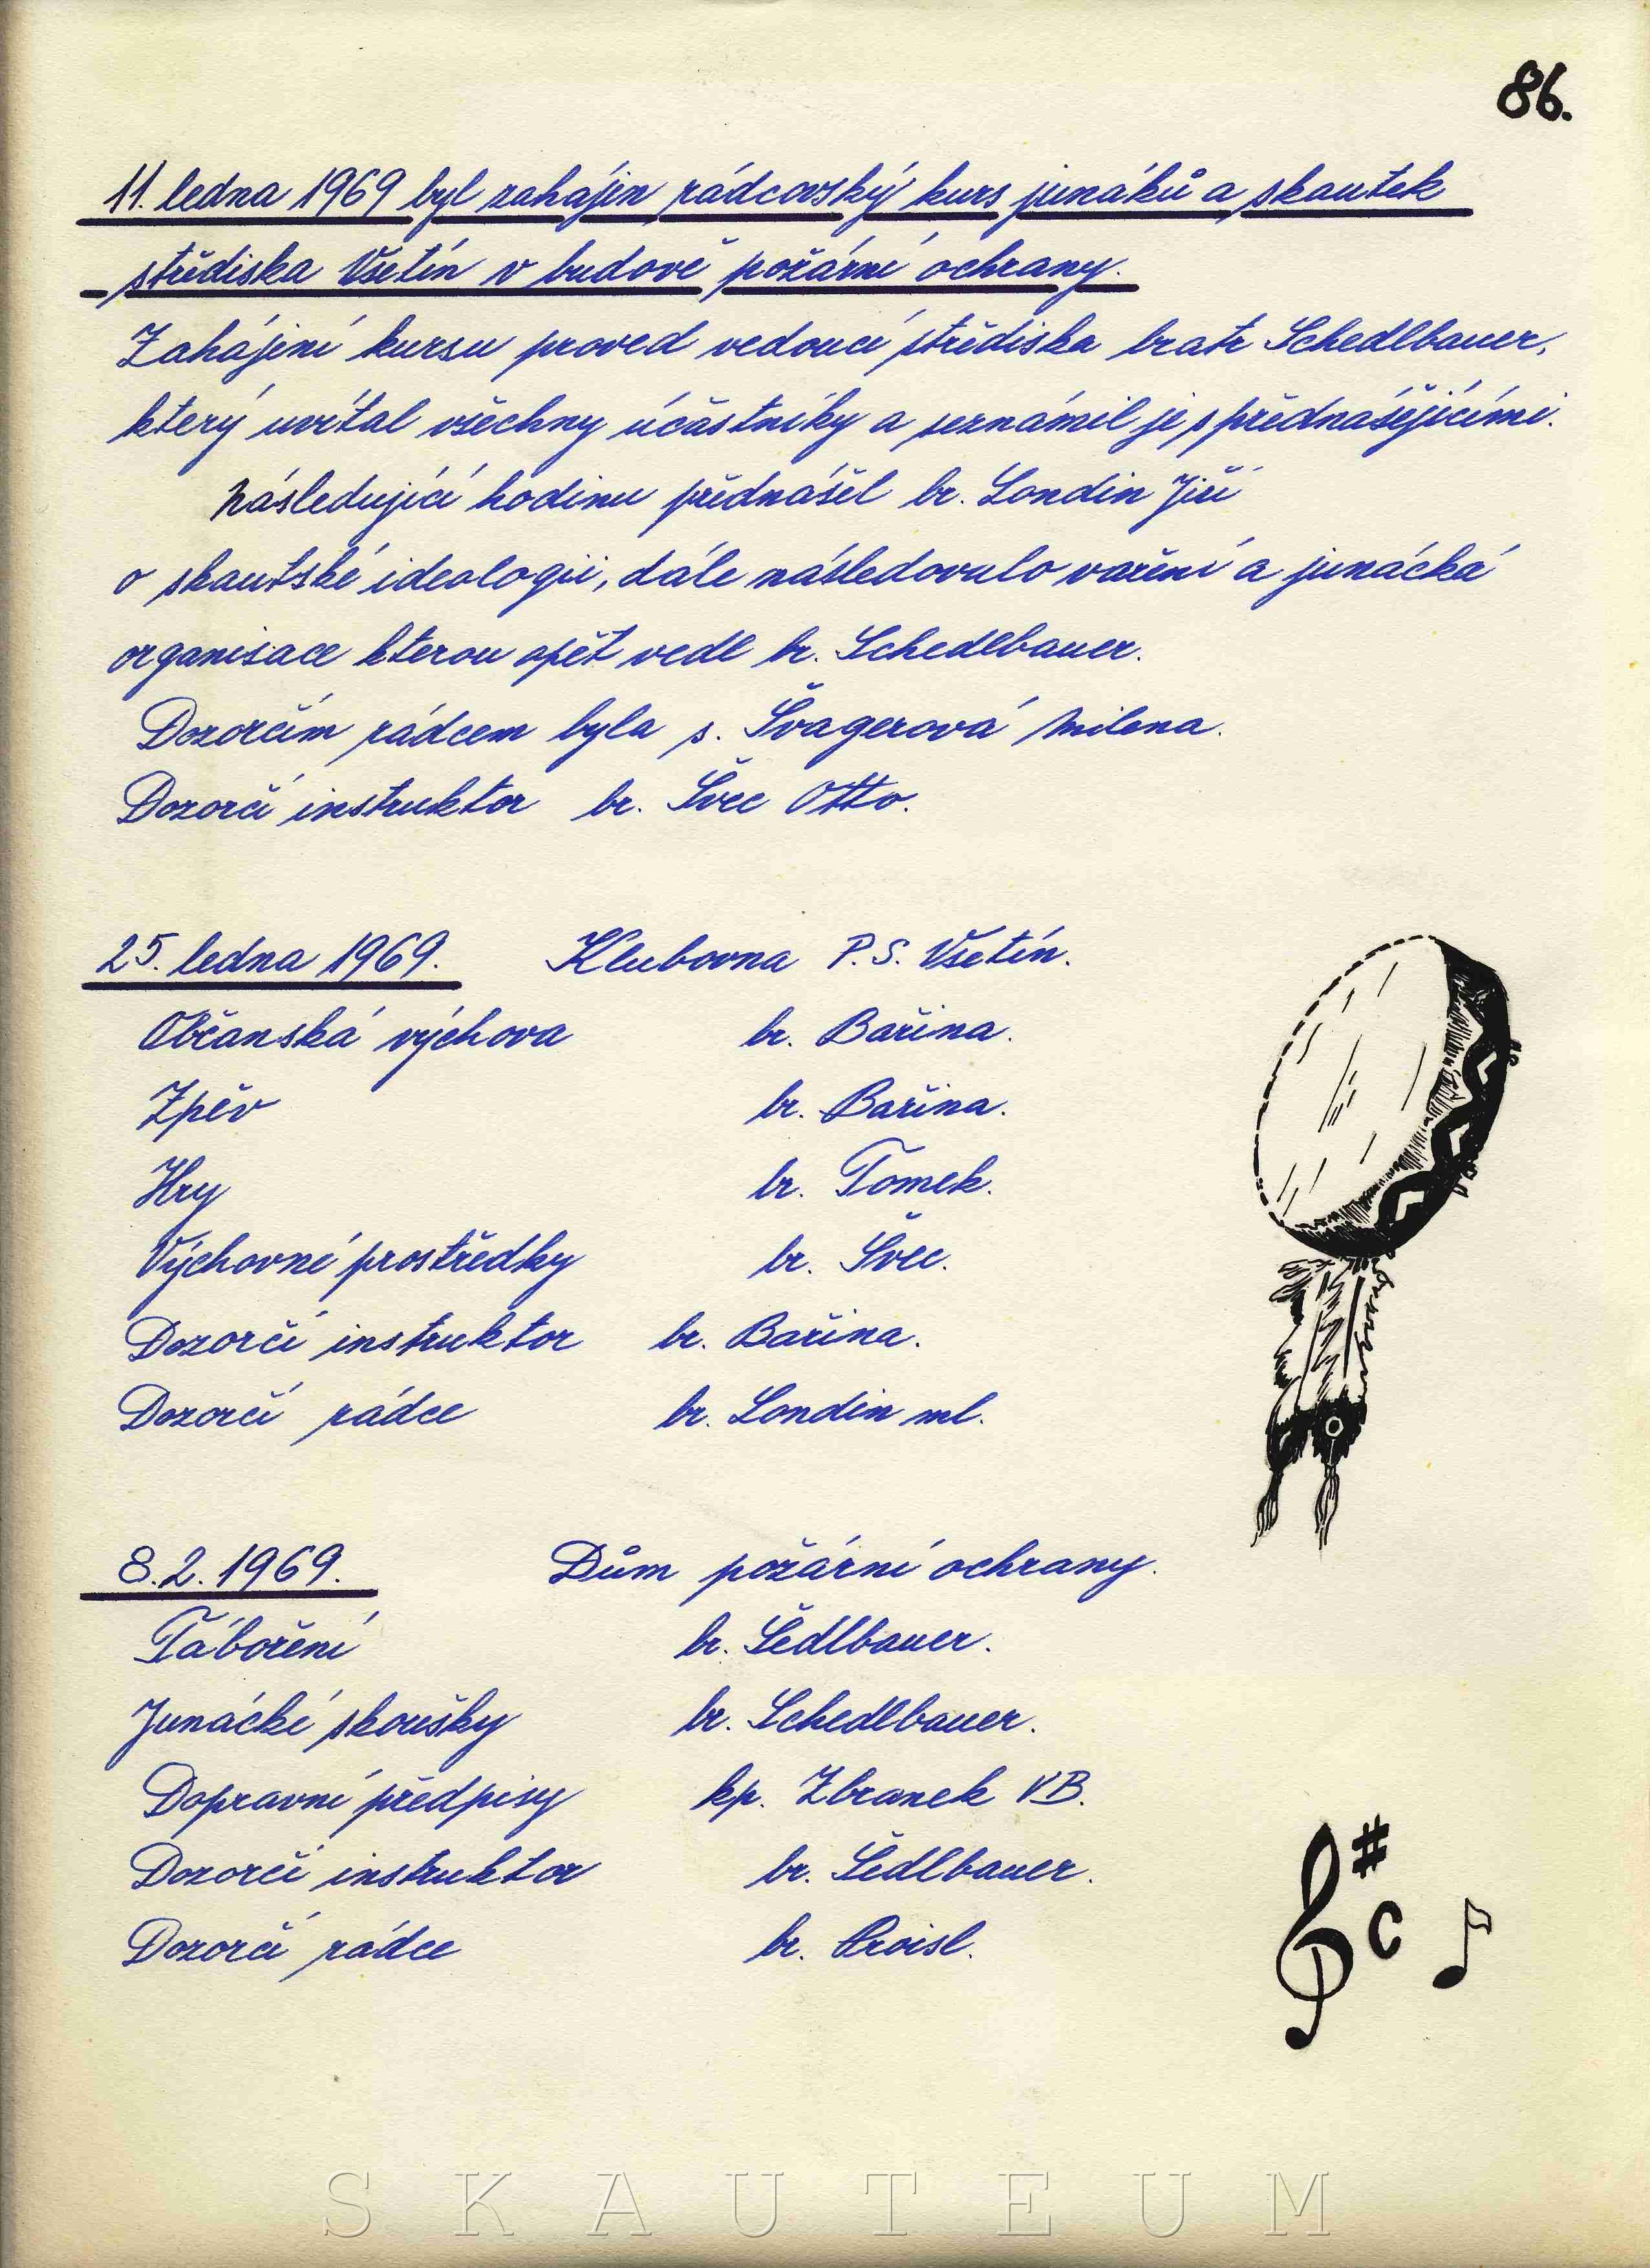 86.
11. ledna 1969 byl zahájen rádcovský kurs junáků a skautek
střediska Vsetín v budově požární ochrany.
Zahájení kursu proved vedoucí střediska bratr Schedlbauer,
který uvítal všechny účastníky a seznámil je s přednášějícími.
Následující hodinu přednášel br. Londin Jiří
o skautské ideologii, dále následovalo vaření a junácká
organisace kterou opět vedl br. Schedlbauer.
Dozorčím rádcem byla s. Švagerová Milena.
Dozorčí instruktor br. Švec Otto.
25. ledna 1969. Klubovna P. S. Vsetín.
Občanská výchova br. Bařina.
Zpěv br. Bařina.
Hry br. Tomek.
Výchovné prostředky br. Švec.
Dozorčí instruktor br. Bařina.
Dozorčí rádce br. Londin ml.
8. 2. 1969. Dům požární ochrany.
Táboření br. Šedlbauer.
Junácké skoušky br. Schedlbauer.
Dopravní předpisy kp. Zbranek VB.
Dozorčí instruktor br. Šedlbauer.
Dozorčí rádce br. Proisl.
C
SKAUTEUM